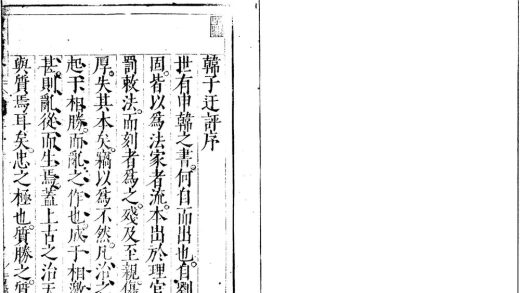 韓子迂評序
世有申韓之書。何自而出也。自劉
固。皆以爲法家者流。本出於理官
罰敕法。而刻者爲之。殘及至親。傷
厚。失其本矣。竊以爲不然。凡治之
起于相勝。而亂之作也。成于相激
甚。則亂從而生焉。蓋上古之治天
與質焉耳矣。忠之極也。質勝之。